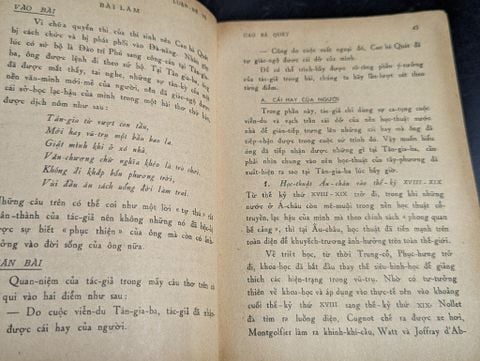 VÀO BÀI
BÀI LÀM
LUẬN-ĐỀ
Vì chữa quyển thi của thí sinh nên Cao bá
bị cách chức và bị phát phối vào Đà-nẵng. Nhân
lúc có sứ bộ là Đào trí Phú sang công-cán tại Tân-gia-
ba, ông được lệnh đi theo sứ bộ. Tại Tân-gia-ba, ông
đã được mắt thấy, tai nghe, những sự tân-kỳ của
nền văn-minh mới mẻ của người, nên đã giác-ngộ được
cái sở-học lạc-hậu của mình trong một bài thơ chữ
được dịch nôm như sau :
Tân-gia từ vượt con tầu,
Mới hay vũ-trụ một bầu bao la.
Giật mình khi ở xó nhà,
Văn-chương chữ nghĩa khéo là trò chơi.
Không đi khắp bốn phương trời,
Vùi đầu án sách uổng đời làm trai.
Những câu trên có thể coi như một lời « tự thú » rất
chân-thành của tác-giả nên không những nó đã bộc-lộ
được sự biết « phục thiện » của ông mà còn có ảnh
hưởng vào đời sống của ông nữa.
THÂN BÀI
Quan-niệm của tác-giả trong mấy câu thơ trên có
qui vào hai điểm như sau :
— Do cuộc viễn-du Tân-gia-ba, tác-giả đã thấy
được cái hay của người.
CAO BÁ QUÁT
45
— Cũng do cuộc xuất ngoại đó, Cao bá Quát đã
tự giác-ngộ được cái dở của mình.
Để có thể trình-bầy được rõ-ràng phần ý-tưởng
của tác-giả trong bài, chúng ta hãy lần-lượt xét theo
từng điểm.
A. CÁI HAY CỦA NGƯỜI
Trong phần này, tác-giả chỉ dùng sự ca-tụng cuộc
viễn-du và vạch trần sái dở của nền học-thuật nước
nhà để gián-tiếp trưng lên những cái hay mà ông đã
tiếp-nhận được trong cuộc sứ-trình đó. Vậy muốn hiểu
ông đã tiếp nhận được những gì tại Tân-gia-ba, cần
phải nhìn chung vào nền học-thuật của tây-phương đã
xuất-hiện ra sao tại Tân-gia-ba lúc bấy giờ.
1. Học-thuật Âu-châu vào thế-kỷ XVIII - XIX
Từ thế kỷ thứ XVIII - XIX trở đi, trong khi những
nước ở Á-châu còn mê-muội trong nền học-thuật cổ-
truyền, lạc hậu của mình mà theo chính sách « phong quan
bế cảng », thì tại Âu-châu, học thuật đã tiến mạnh trên
toàn diện để khuyếch-trương ảnh-hưởng trên toàn thế-giới.
Về triết học, từ thời Trung-cổ, Phục-hưng trở
đi, khoa-học đã bắt đầu thay thế siêu-hình-học để giảng
thích các hiện-trạng trong vũ-trụ. Nhờ có tư-tưởng
thiên về khoa-học và áp dụng vào thực-tế nên vào khoảng
cuối thế-kỷ thứ XVIII sang thế-kỷ thứ XIX, Nollet
đã tìm ra luồng điện, Cugnot chế ra được xe hơi,
Montgolfier làm ra khinh-khí-cầu, Watt và Joffray d'Ab-